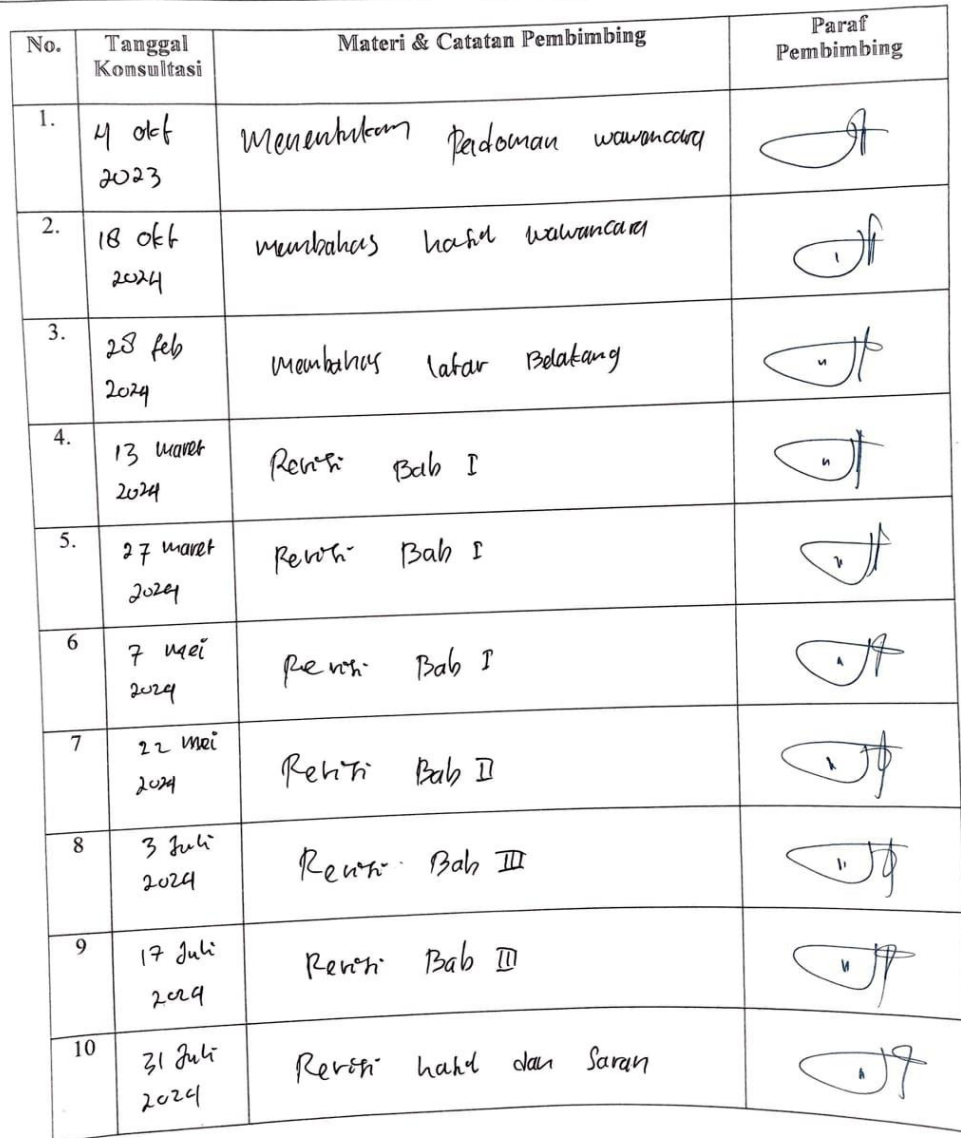 No. Tanggal Konsultasi Materi & Catatan Pembimbing Paraf Pembimbing
1. 4 okt 2023 Menentukan Pedoman wawancara
2. 18 okt 2024 membahas hasil wawancara
3. 28 feb 2024 membahas latar Belakang
4. 13 maret 2024 Revisi Bab I
5. 27 maret 2024 Revisi Bab I
6 7 mei 2024 Revisi Bab I
7 22 mei 2024 Revisi Bab II
8 3 Juli 2024 Revisi Bab III
9 17 Juli 2024 Revisi Bab III
10 31 Juli 2024 Revisi hasil dan Saran